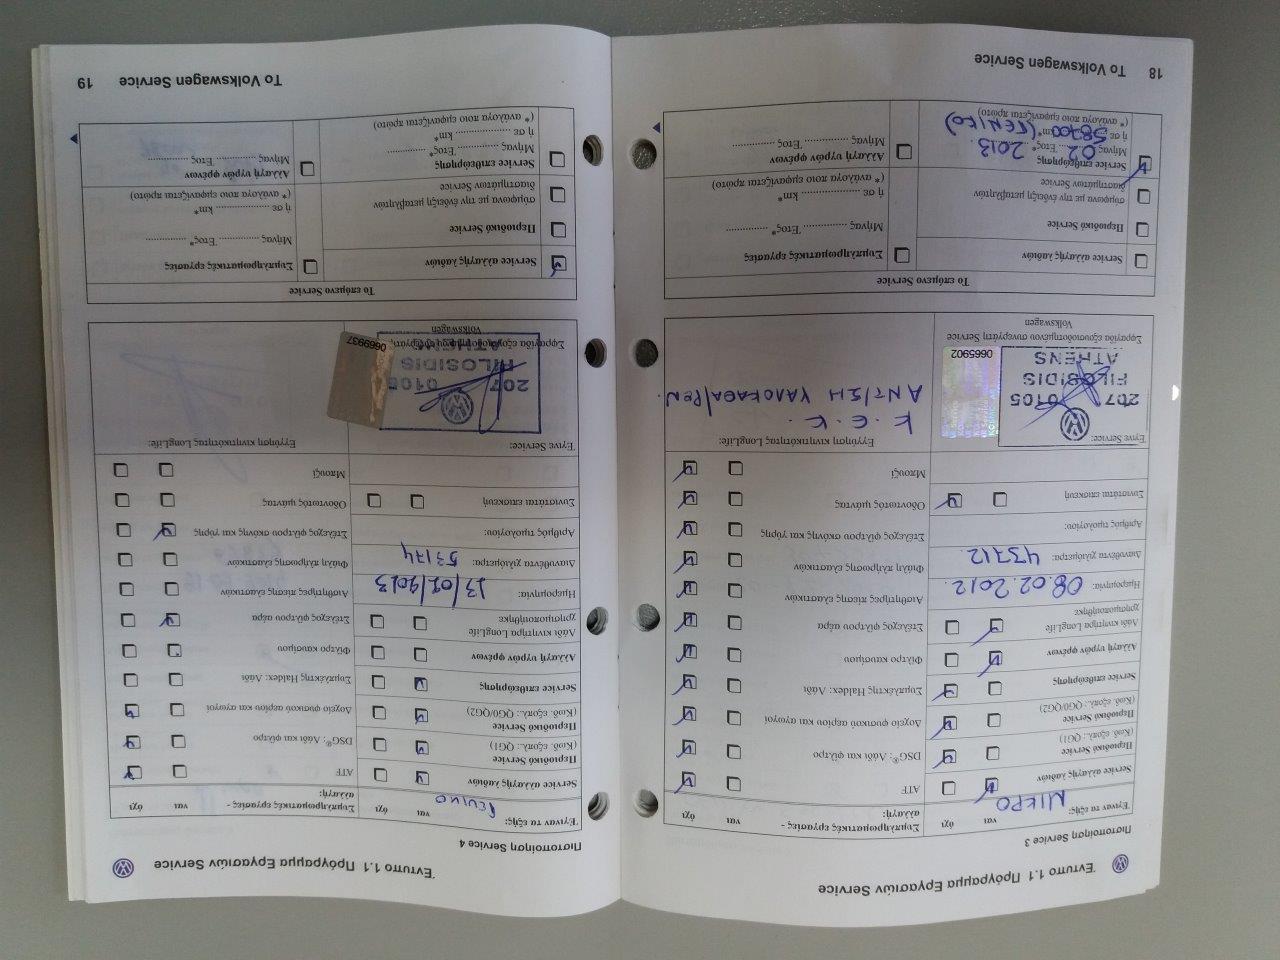 Έντυπο 1.1 Πρόγραμμα Εργασιών Service
Πιστοποίηση Service 3
Έγιναν τα εξής:
ΜΙΚΡΟ
ναι
όχι
Service αλλαγής λαδιών
Περιοδικό Service
(Κωδ. εξοπλ.: QG1)
Περιοδικό Service
(Κωδ. εξοπλ.: QG0/QG2)
Service επιθεώρησης
Αλλαγή υγρών φρένων
Λάδι κινητήρα LongLife
χρησιμοποιήθηκε
Ημερομηνία: 08.02.2012.
Διανυθέντα χιλιόμετρα: 43712.
Αριθμός τιμολογίου:
Συνιστάται επισκευή
Έγινε Service:
207 0105
FILOSIDIS
ATHENS
0665902
Σφραγίδα εξουσιοδοτημένου συνεργάτη Service
Volkswagen
Συμπληρωματικές εργασίες -
αλλαγή:
ναι
όχι
ATF
DSG®: Λάδι και φίλτρο
Δοχείο φυσικού αερίου και αγωγοί
Συμπλέκτης Haldex: Λάδι
Φίλτρο καυσίμου
Στέλεχος φίλτρου αέρα
Αισθητήρες πίεσης ελαστικών
Φιάλη πλήρωσης ελαστικών
Στέλεχος φίλτρου σκόνης και γύρης
Οδοντωτός ιμάντας
Μπουζί
Εγγύηση κινητικότητας LongLife:
Κ.Θ.Κ.
ΑΝΤ/ΣΗ ΥΑΛΟΚΑΘΑ/ΡΩΝ.
Το επόμενο Service
Service αλλαγής λαδιών
Περιοδικό Service
σύμφωνα με την ένδειξη μεταβλητών
διαστημάτων Service
Service επιθεώρησης
Μήνας 02 Έτος* 2013.
ή σε 58700 km* (ΓΕΝΙΚΟ)
(* ανάλογα ποιο εμφανίζεται πρώτο)
Συμπληρωματικές εργασίες
Μήνας ............... Έτος* ...............
ή σε .................... km*
(* ανάλογα ποιο εμφανίζεται πρώτο)
Αλλαγή υγρών φρένων
Μήνας ............... Έτος ...............
18 Το Volkswagen Service
Έντυπο 1.1 Πρόγραμμα Εργασιών Service
Πιστοποίηση Service 4
Έγιναν τα εξής:
ΓΕΝΙΚΟ
ναι
όχι
Service αλλαγής λαδιών
Περιοδικό Service
(Κωδ. εξοπλ.: QG1)
Περιοδικό Service
(Κωδ. εξοπλ.: QG0/QG2)
Service επιθεώρησης
Αλλαγή υγρών φρένων
Λάδι κινητήρα LongLife
χρησιμοποιήθηκε
Ημερομηνία: 13/02/2013
Διανυθέντα χιλιόμετρα: 53174
Αριθμός τιμολογίου:
Συνιστάται επισκευή
Έγινε Service:
207 0105
FILOSIDIS
ATHENS
0669937
Σφραγίδα εξουσιοδοτημένου συνεργάτη
Volkswagen
Συμπληρωματικές εργασίες -
αλλαγή:
ναι
όχι
ATF
DSG®: Λάδι και φίλτρο
Δοχείο φυσικού αερίου και αγωγοί
Συμπλέκτης Haldex: Λάδι
Φίλτρο καυσίμου
Στέλεχος φίλτρου αέρα
Αισθητήρες πίεσης ελαστικών
Φιάλη πλήρωσης ελαστικών
Στέλεχος φίλτρου σκόνης και γύρης
Οδοντωτός ιμάντας
Μπουζί
Εγγύηση κινητικότητας LongLife:
Το επόμενο Service
Service αλλαγής λαδιών
Περιοδικό Service
σύμφωνα με την ένδειξη μεταβλητών
διαστημάτων Service
Service επιθεώρησης
Μήνας ............... Έτος* ...............
ή σε .................... km*
(* ανάλογα ποιο εμφανίζεται πρώτο)
Συμπληρωματικές εργασίες
Μήνας ............... Έτος* ...............
ή σε .................... km*
(* ανάλογα ποιο εμφανίζεται πρώτο)
Αλλαγή υγρών φρένων
Μήνας ............... Έτος ...............
Το Volkswagen Service 19